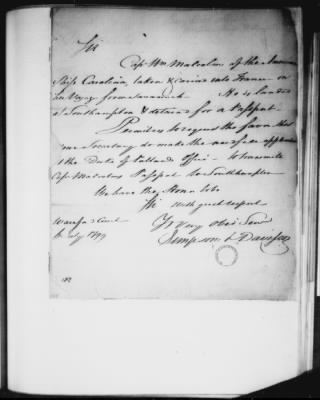 Sir
Capt Wm Malcolm of the American
Ship Carolina, taken & carried into France on
her Voyage from Savannah He is landed
at Southampton & detained for a Passport.
Permit us to request the favor that
your Secretary do make the
the Duke of Portlands Office to transmit
Capt Malcolms Passport to Southampton
We have the Honr to be
Sir with great respect
Yr very obed Serv
Simpson & Davison
Court
6 July 1799